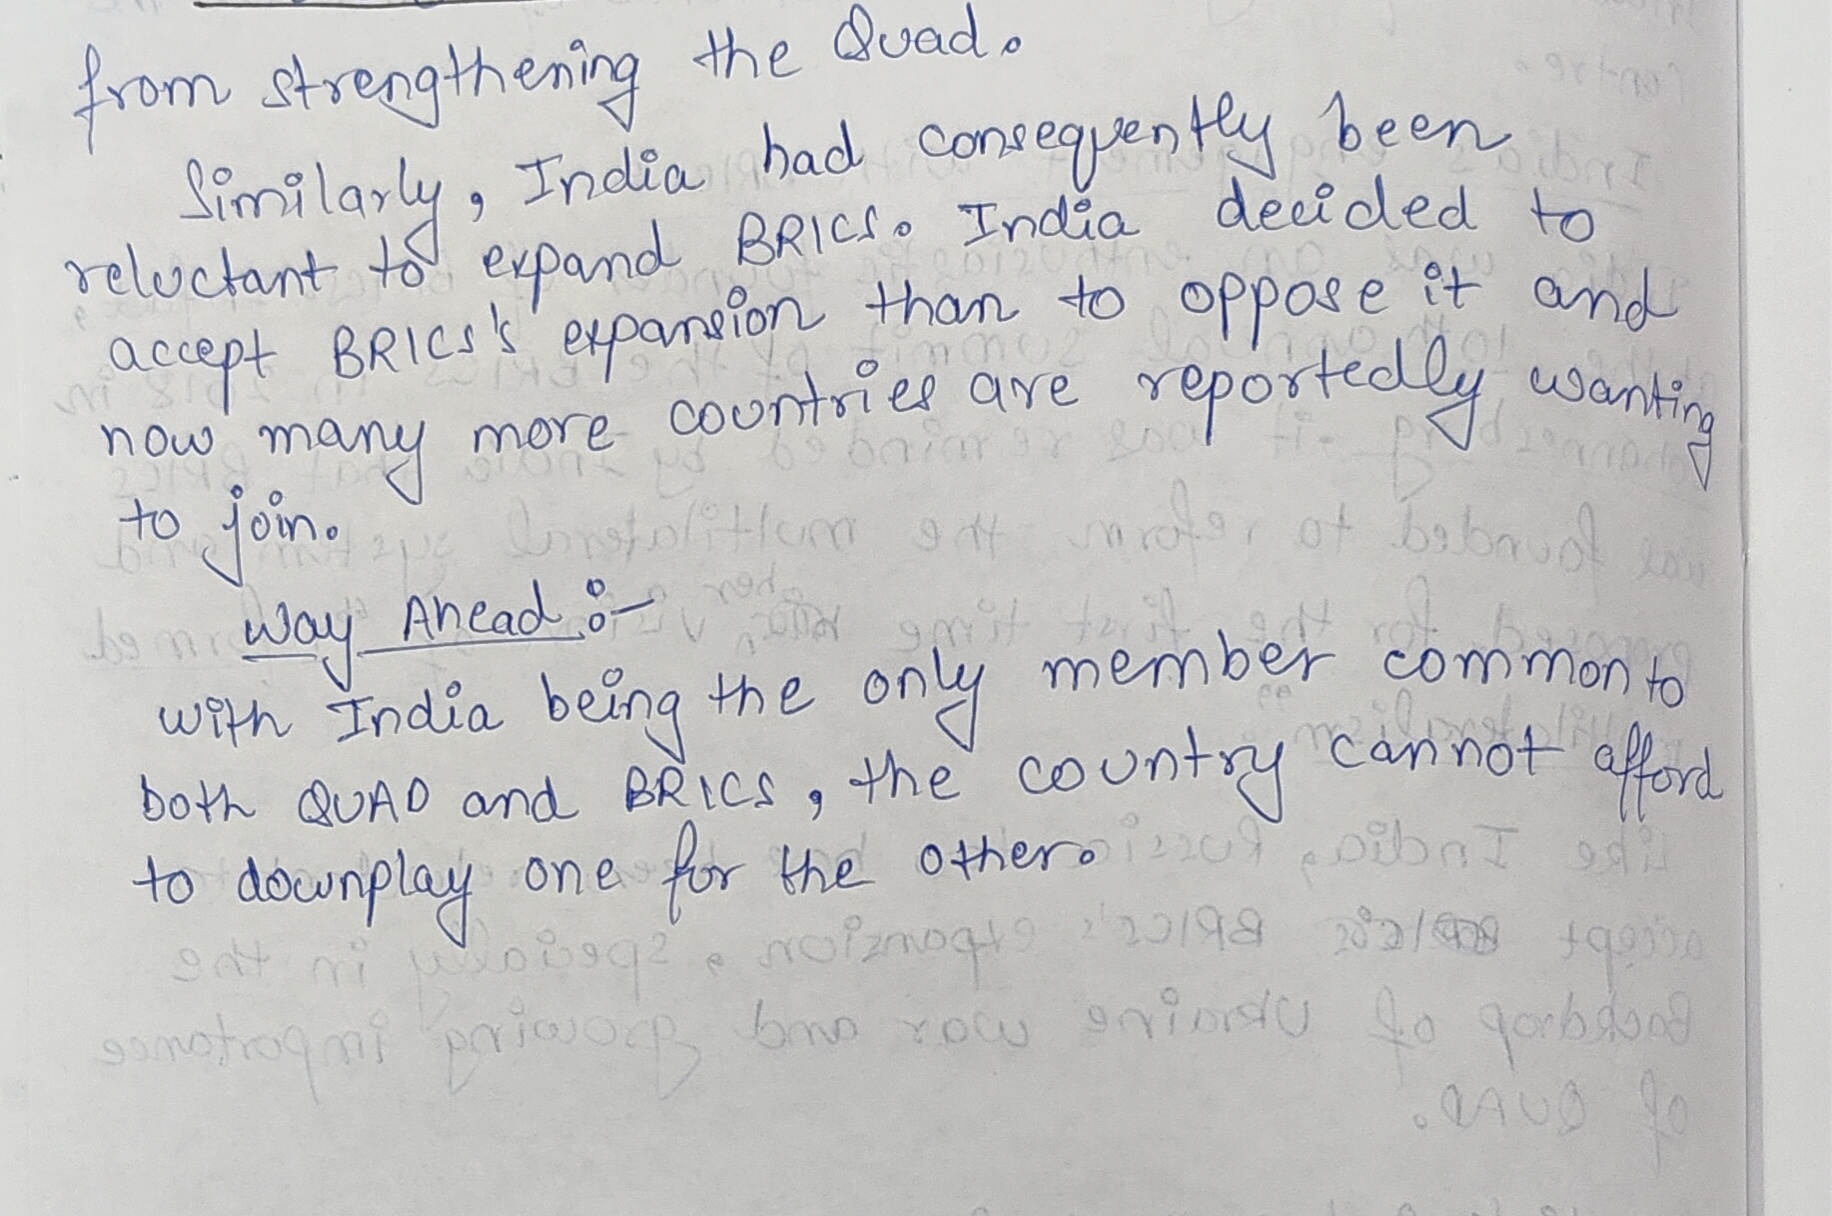 from strengthening the Quad.
Similarly, India had consequently been
reluctant to expand BRICS. India decided to
accept BRICS's expansion than to oppose it and
now many more countries are reportedly wanting
to join.
Way Ahead :-
with India being the only member common to
both QUAD and BRICS, the country cannot afford
to downplay one for the other.